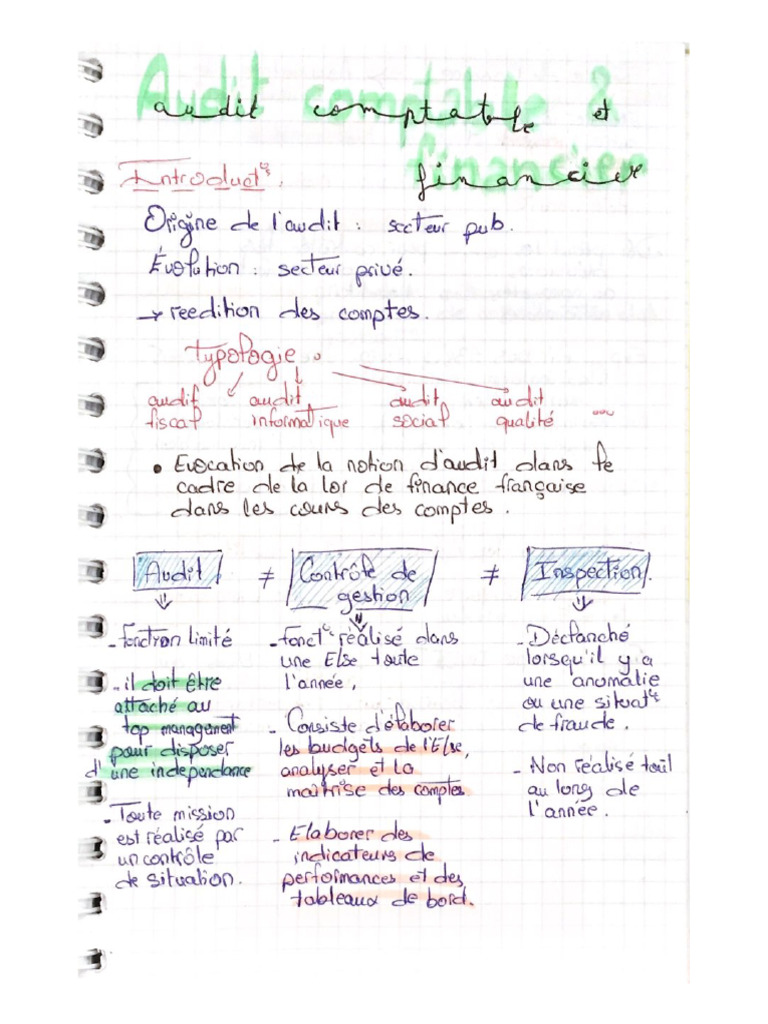 Audit comptable &
financier
audit comptable et
financier
Introduct°.
Origine de l'audit : secteur pub.
Évolution : secteur privé.
→ reedition des comptes.
typologie.
audit fiscal
audit informatique
audit social
audit qualité ...
• Evocation de la notion d'audit dans le
cadre de la loi de finance française
dans les cours des comptes.
Audit ≠ Contrôle de gestion ≠ Inspection.
- fonction limité
- il doit être
attaché au
top management
pour disposer
d'une independance
- Toute mission
est réalisé par
un contrôle
de situation.
- fonct° réalisé dans
une Else toute
l'année,
- Consiste d'élaborer
les budgets de l'Else,
analyser et la
maîtrise des comptes
- Elaborer des
indicateurs de
performances et des
tableaux de bord.
- Déclanché
lorsqu'il y a
une anomalie
ou une situat°
de fraude.
- Non réalisé tout
au long de
l'année.